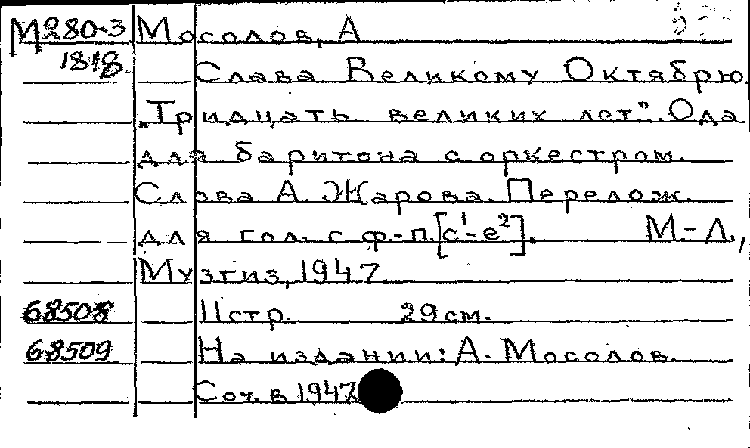 М280-3 Мосолов, А
1818 Слава Великому Октябрю.
„Тридцать великих лет". Ода
для баритона с оркестром.
Слова А. Жарова. Перелож.
для гол. с ф-п.[c¹-e²]. М.-Л.,
Музгиз, 1947
68508 11стр. 29см.
68509 На издании: А. Мосолов.
Соч. в 1947